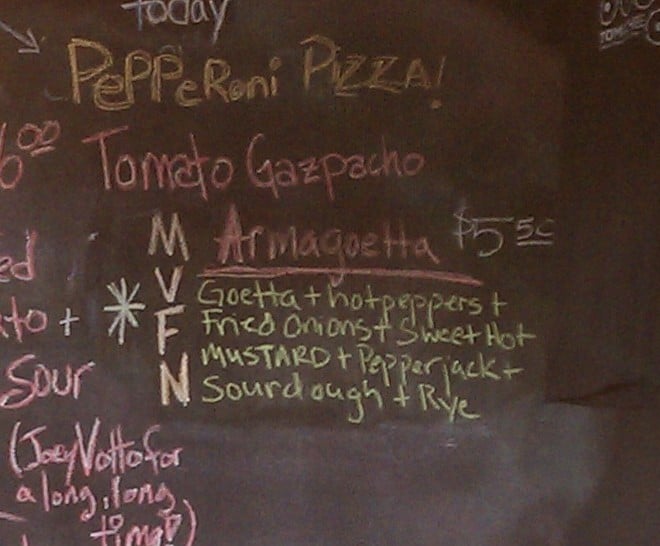 today
Pepperoni Pizza!
00 Tomato Gazpacho
M Armagoetta $5 50
V Goetta + hot peppers +
F Fried Onions + Sweet Hot
MUSTARD + Pepperjack +
N Sourdough + Rye
+ *
Sour
(Joey Votto for
a long, long
time!)